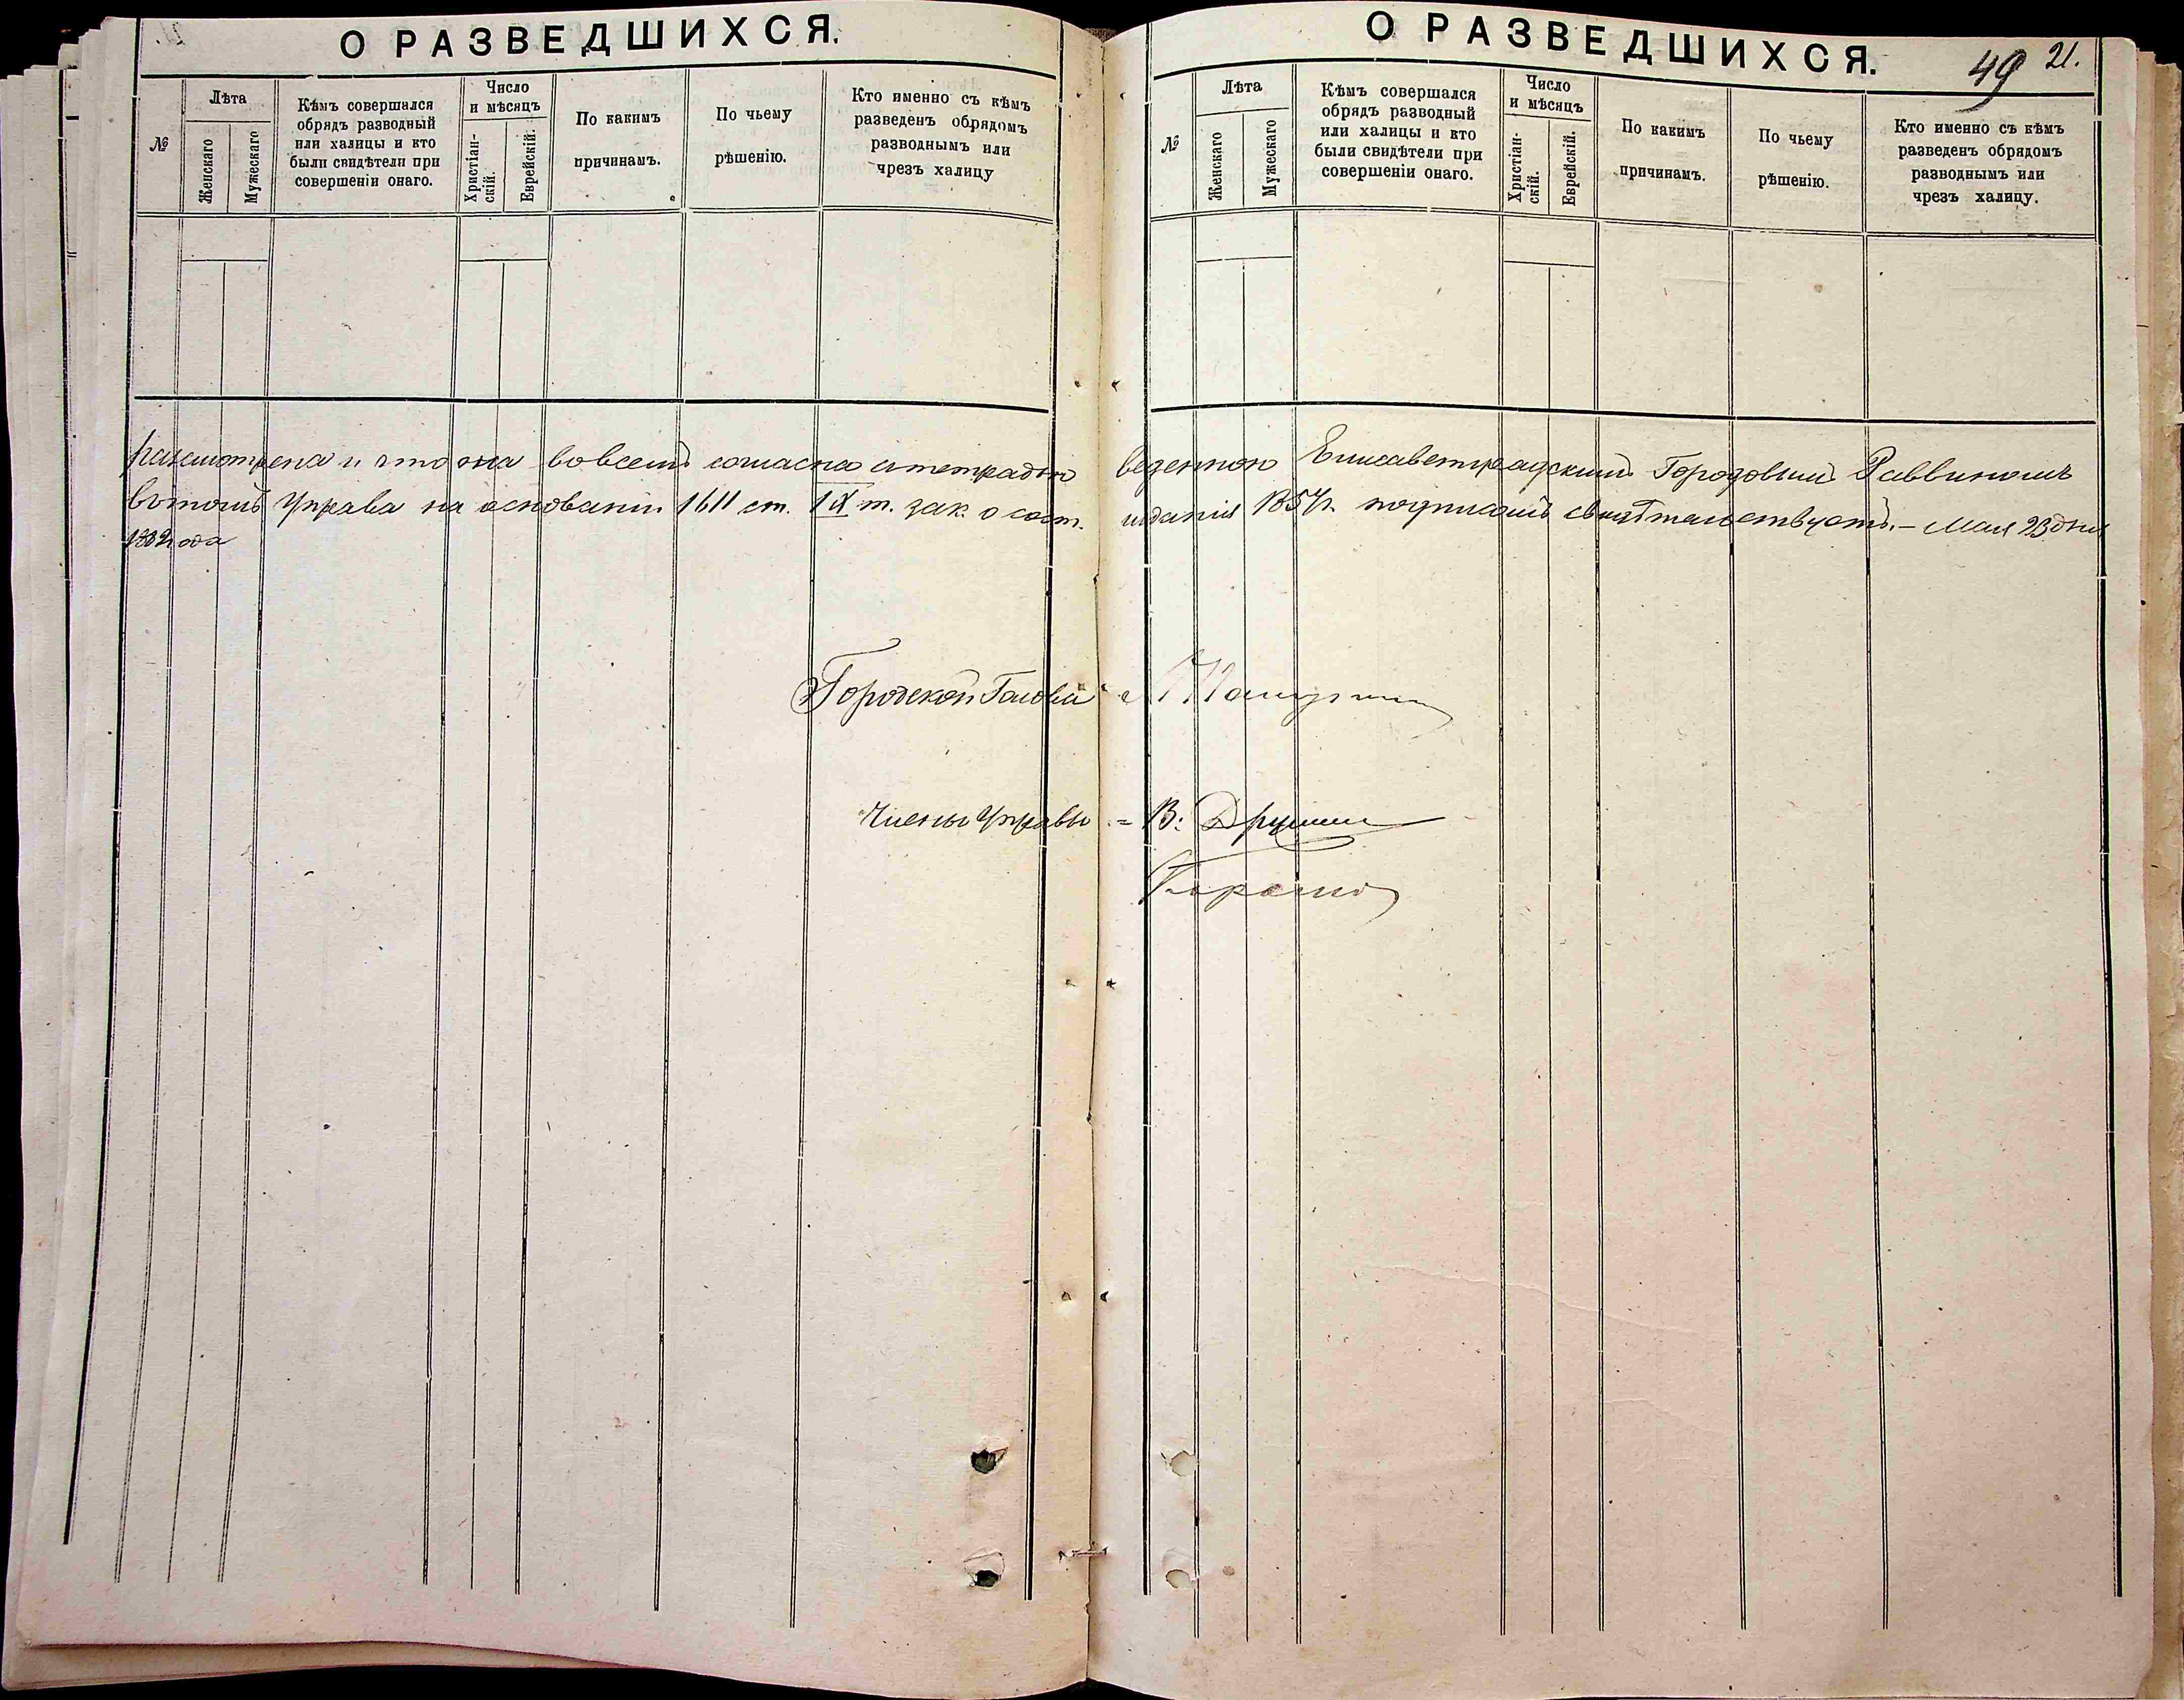 О РАЗВЕДШИХСЯ.
№
Лѣта
Женскаго
Мужескаго
Кѣмъ совершался
обрядъ разводный
или халицы и кто
были свидѣтели при
совершеніи онаго.
Число
и мѣсяцъ
Христіан-
скій.
Еврейскій.
По какимъ
причинамъ.
По чьему
рѣшенію.
Кто именно съ кѣмъ
разведенъ обрядомъ
разводнымъ или
чрезъ халицу
О РАЗВЕДШИХСЯ.
49 21.
№
Лѣта
Женскаго
Мужескаго
Кѣмъ совершался
обрядъ разводный
или халицы и кто
были свидѣтели при
совершеніи онаго.
Число
и мѣсяцъ
Христіан-
скій.
Еврейскій.
По какимъ
причинамъ.
По чьему
рѣшенію.
Кто именно съ кѣмъ
разведенъ обрядомъ
разводнымъ или
чрезъ халицу.
разсмотрена и что она во всемъ согласна с тетрадью веденною Елисаветградскимъ Городовымъ Раввиномъ
въ томъ Управа на основаніи 1611 ст. IX т. зак. о сост. изданія 1857г. подписомъ свидѣтельствуетъ. – Мая 23 дня
года
Городской Голова
Члены Управы = В: